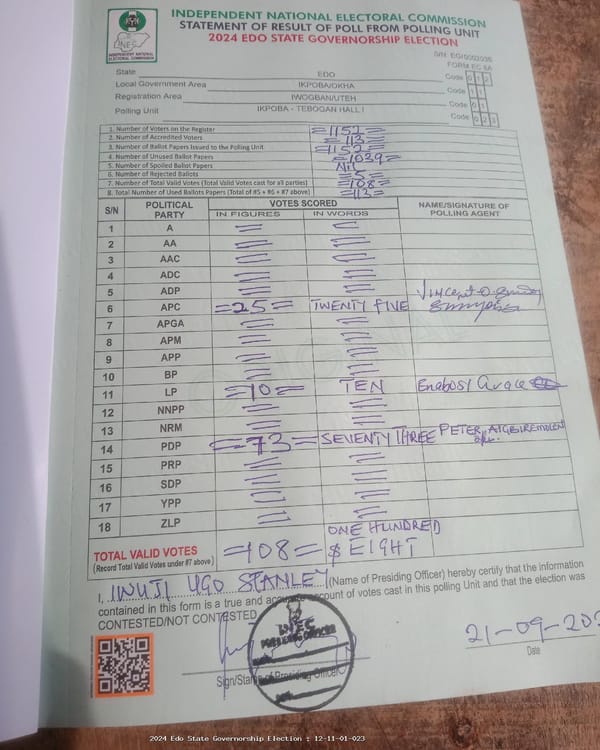 INDEPENDENT NATIONAL ELECTORAL COMMISSION
STATEMENT OF RESULT OF POLL FROM POLLING UNIT
2024 EDO STATE GOVERNORSHIP ELECTION
INEC
INDEPENDENT NATIONAL ELECTORAL COMMISSION
FORM EC 8A
State EDO Code 1 2
Local Government Area IKPOBA/OKHA Code 1 1
Registration Area IWOGBAN/UTEH Code 0 1
Polling Unit IKPOBA - TEBOGAN HALL I Code 0 2 3
1. Number of Voters on the Register =1152=
2. Number of Accredited Voters =113=
3. Number of Ballot Papers Issued to the Polling Unit =1152=
4. Number of Unused Ballot Papers =1039=
5. Number of Spoiled Ballot Papers Nil
6. Number of Rejected Ballots =5=
7. Number of Total Valid Votes (Total Valid Votes cast for all parties) =108=
8. Total Number of Used Ballots Papers (Total of #5 + #6 + #7 above) =113=
S/N POLITICAL PARTY VOTES SCORED NAME/SIGNATURE OF POLLING AGENT
IN FIGURES IN WORDS
1 A
2 AA
3 AAC
4 ADC
5 ADP
6 APC =25= TWENTY FIVE Vincent O.
7 APGA
8 APM
9 APP
10 BP
11 LP =10= TEN
12 NNPP
13 NRM
14 PDP =73= SEVENTY THREE PETER
15 PRP
16 SDP
17 YPP
18 ZLP
TOTAL VALID VOTES =108= ONE HUNDRED
(Record Total Valid Votes under #7 above) $ EIGHT
I, INUTI UGO STANLEY (Name of Presiding Officer) hereby certify that the information
contained in this form is a true and account of votes cast in this polling Unit and that the election was
CONTESTED/NOT CONTESTED
INEC
PRESIDING OFFICER
21-09-202
Sign/Stamp of Presiding Officer
Date
2024 Edo State Governorship Election : 12-11-01-023